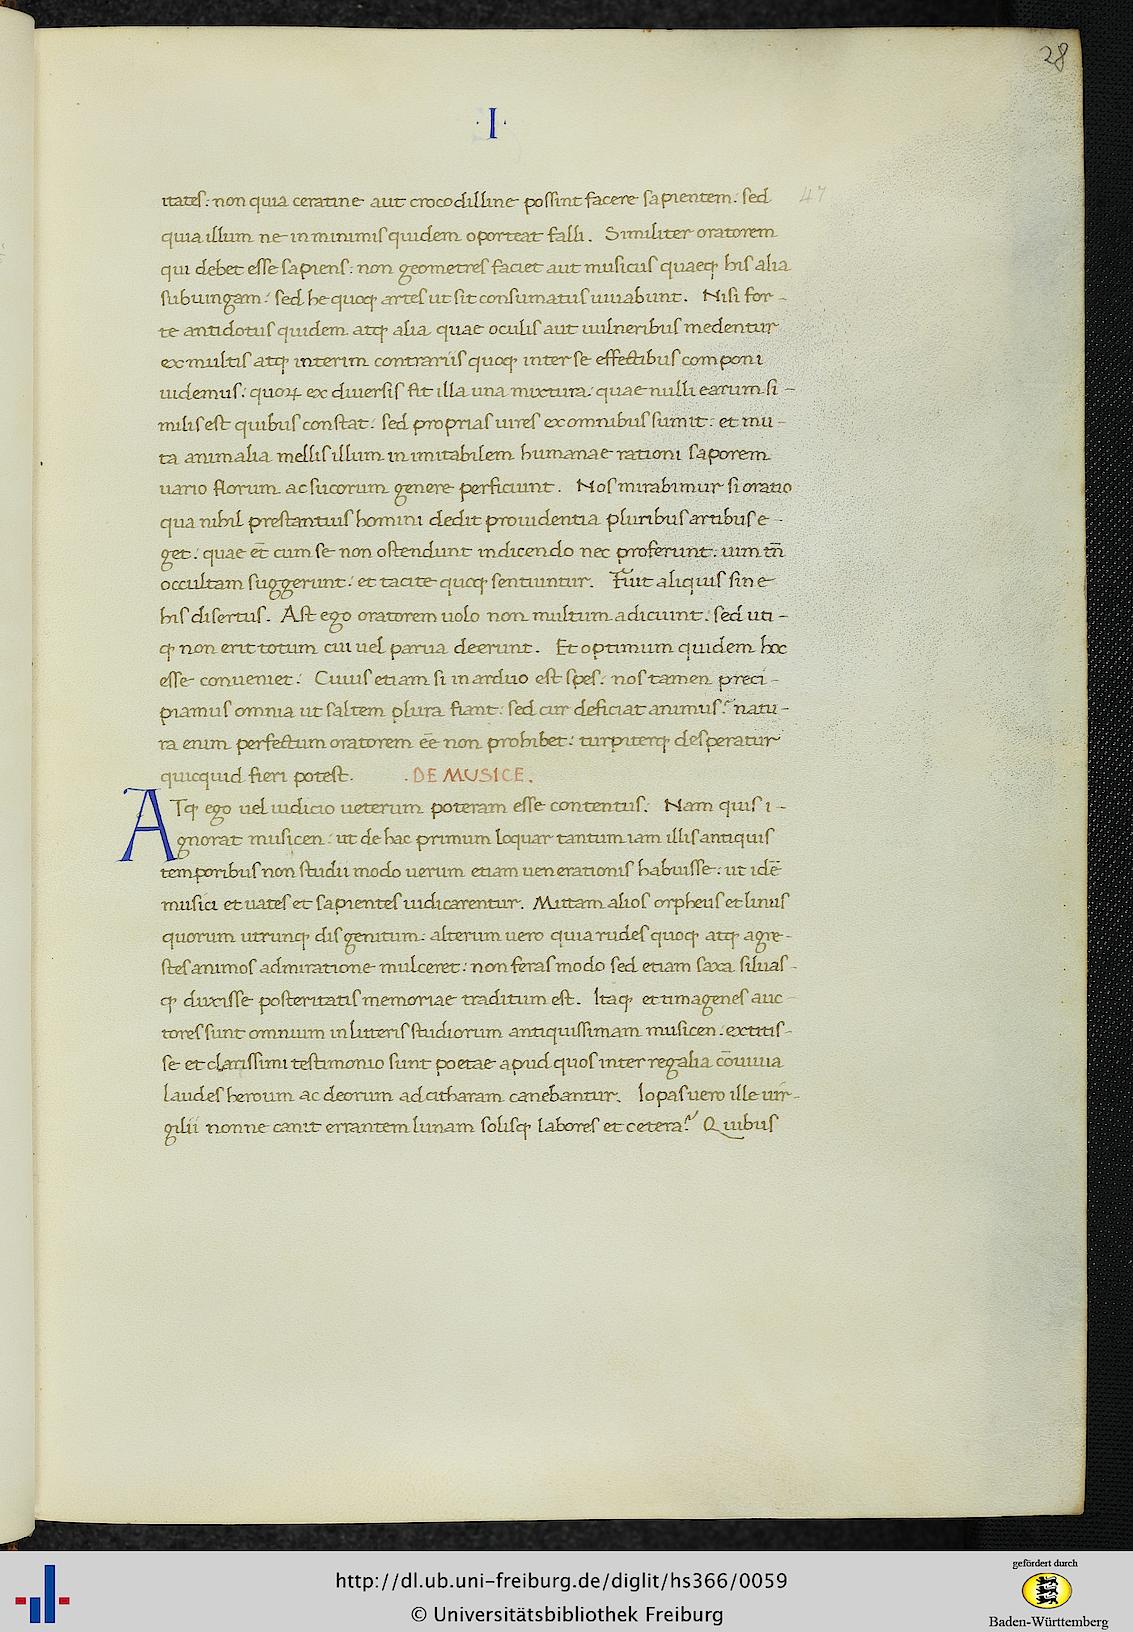 28
·I·
itates: non quia ceratine aut crocodilline possint facere sapientem: sed
47
quia illum ne in minimis quidem oporteat falli. Similiter oratorem
qui debet esse sapiens: non geometres faciet aut musicus quaeq his alia
subiungam: sed he quoq artes ut sit consumatus iuuabunt. Nisi for-
te antidotus quidem atq alia quae oculis aut uulneribus medentur
ex multis atq interim contrariis quoq inter se effectibus componi
uidemus: quoꝝ ex diuersis fit illa una mixtura: quae nulli earum si-
milis est quibus constat: sed proprias uires ex omnibus sumit: et mu-
ta animalia mellis illum in imitabilem humanae rationi saporem
uario florum ac sucorum genere perficiunt. Nos mirabimur si oratio
qua nihil prestantius homini dedit prouidentia pluribus artibus e-
get: quae et̄ cum se non ostendunt in dicendo nec proferunt: uim tn̄
occultam suggerunt: et tacite quoq sentiuntur. Fuit aliquis sine
his disertus. Ast ego oratorem uolo non multum adiciunt: sed uti-
q non erit totum cui uel parua deerunt. Et optimum quidem hoc
esse conueniet: Cuius etiam si in arduo est spes: nos tamen preci-
piamus omnia ut saltem plura fiant: sed cur deficiat animus? natu-
ra enim perfectum oratorem ēe non prohibet: turpiterq desperatur
quicquid fieri potest. .DE MUSICE.
ATq ego uel iudicio ueterum poteram esse contentus: Nam quis i-
gnorat musicen: ut de hac primum loquar tantum iam illis antiquis
temporibus non studii modo uerum etiam uenerationis habuisse: ut idē
musici et uates et sapientes iudicarentur. Mittam alios orpheus et linus
quorum utrunq dis genitum: alterum uero quia rudes quoq atq agre-
stes animos admiratione mulceret: non feras modo sed etiam saxa siluas-
q duxisse posteritatis memoriae traditum est. Itaq et timagenes auc
tores sunt omnium in litteris studiorum antiquissimam musicen: extitis-
se et clarissimi testimonio sunt poetae apud quos inter regalia cōuiuia
laudes heroum ac deorum ad citharam canebantur. Iopas uero ille uir-
gilii nonne canit errantem lunam solisq labores et cetera? Quibus
http://dl.ub.uni-freiburg.de/diglit/hs366/0059
© Universitätsbibliothek Freiburg
gefördert durch
Baden-Württemberg